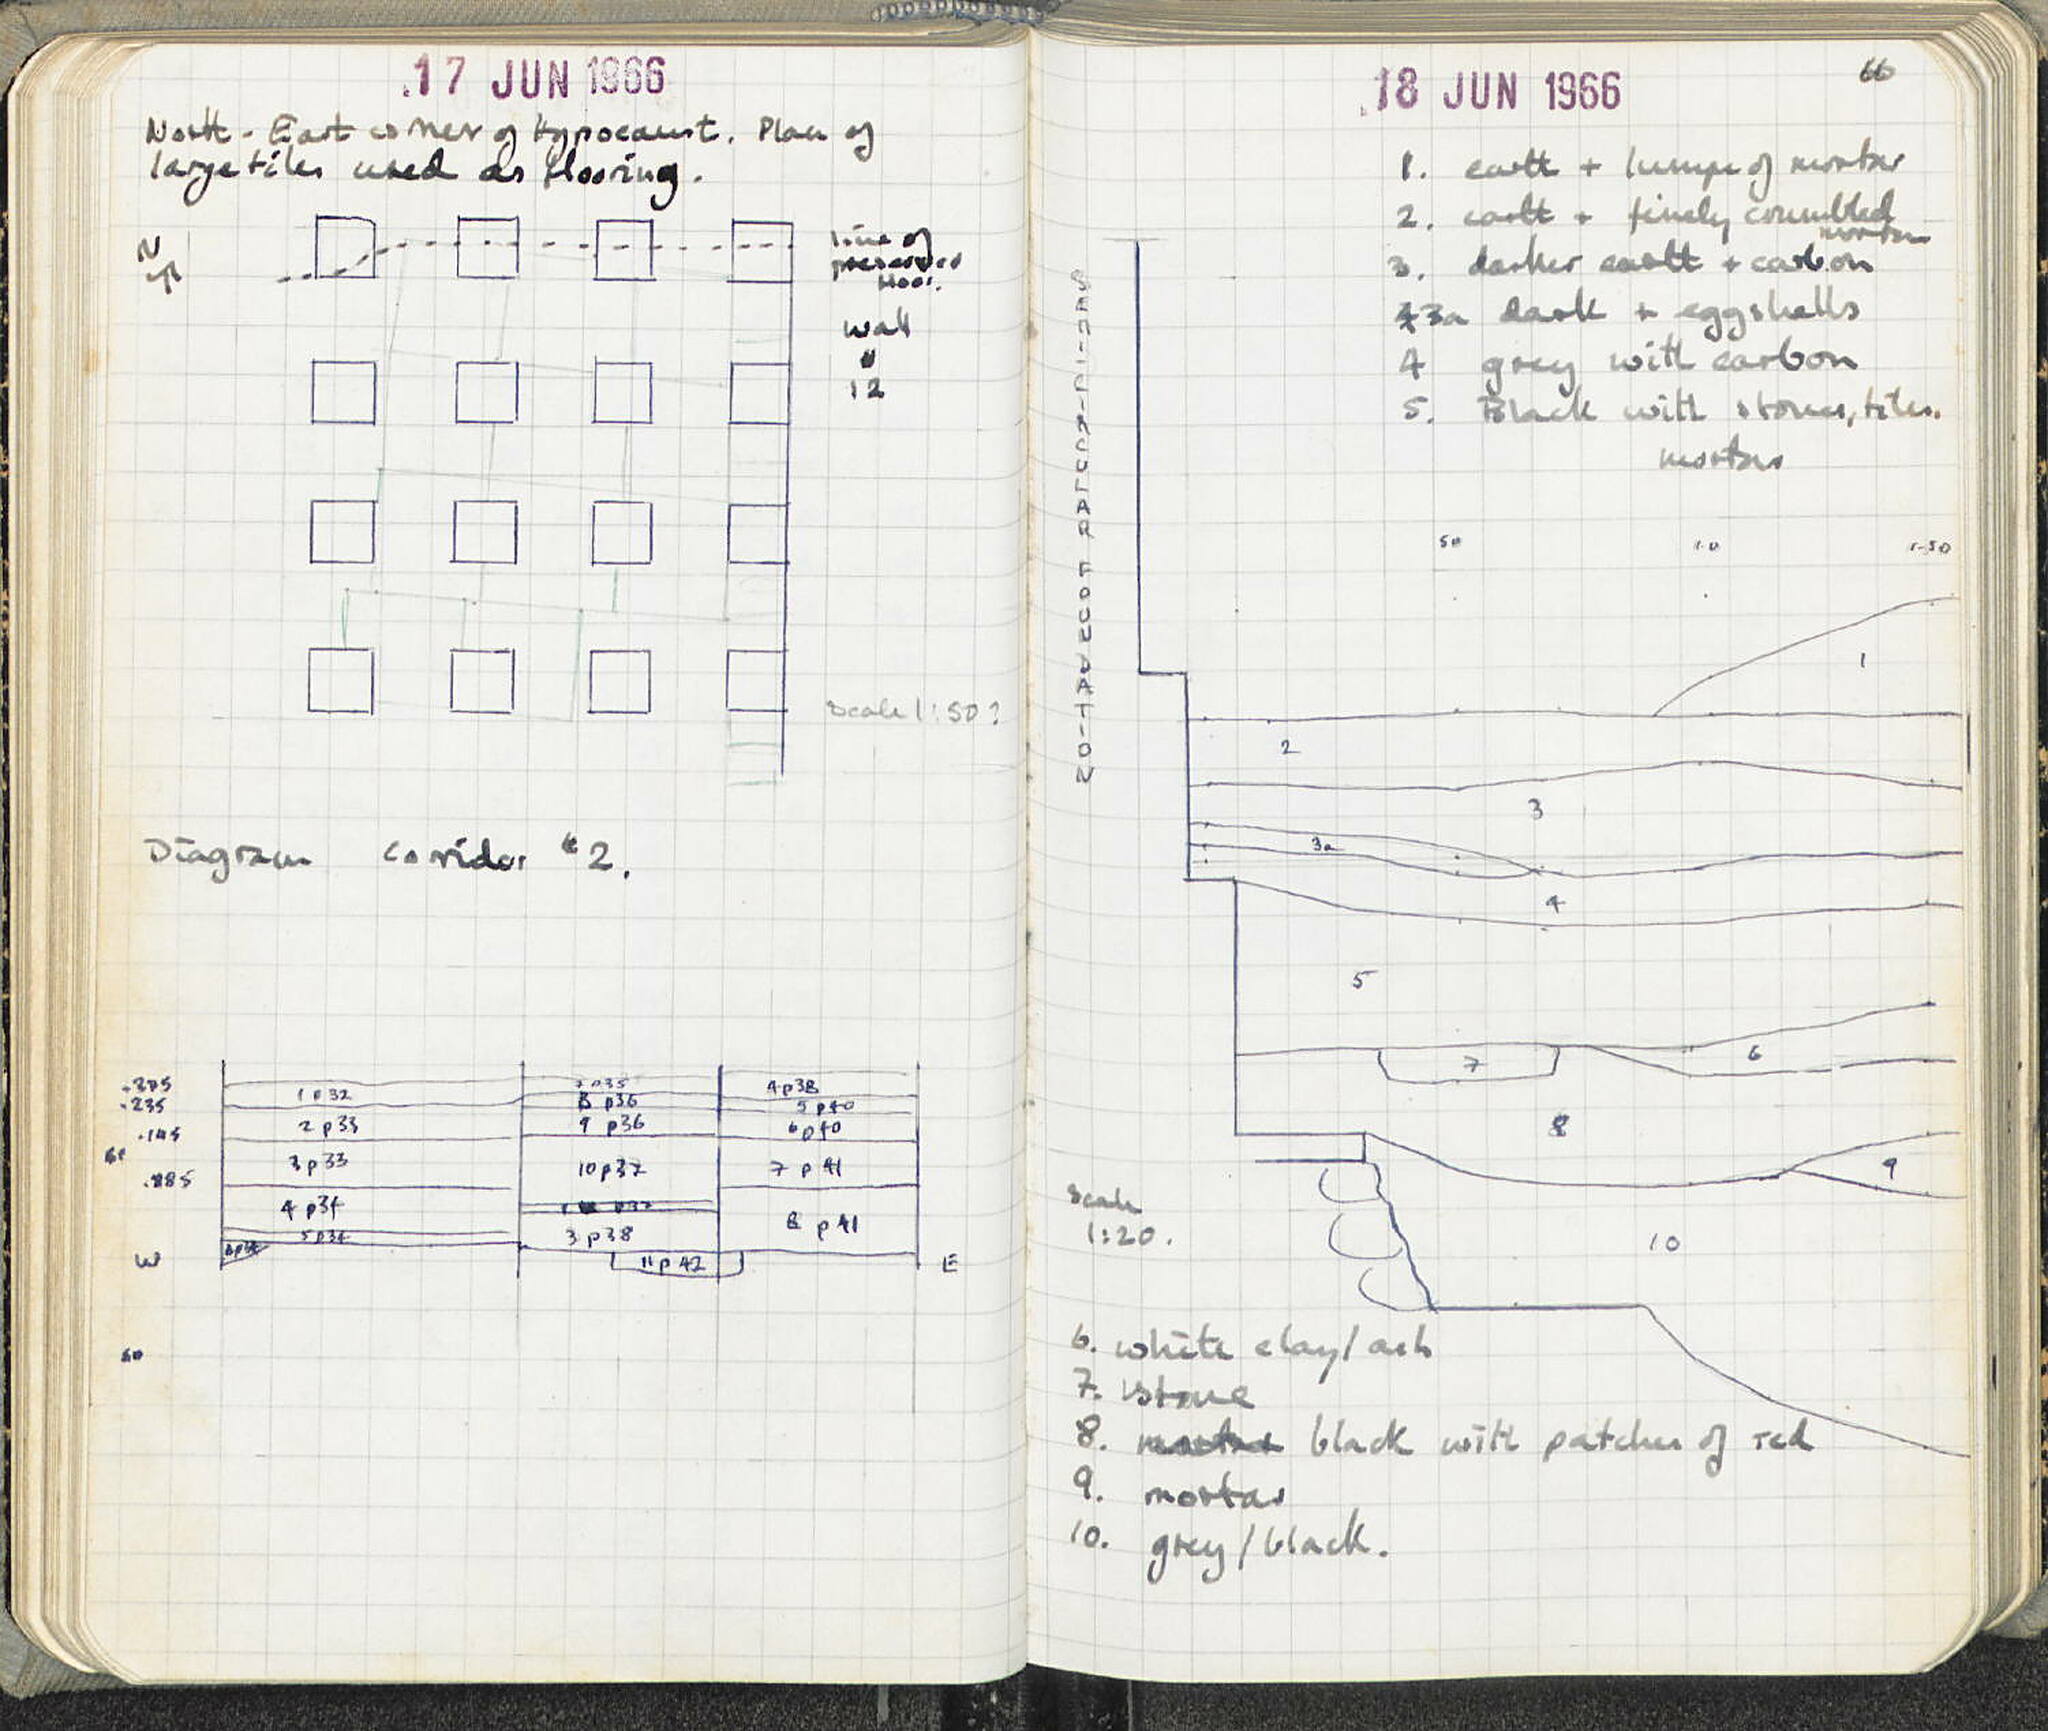 17 JUN 1966
North-East corner of Hypocaust. Plan of
large tiles used as flooring.
N
line of
preserved
floor.
wall
12
Scale 1:50?
Diagram corridor #2.
.235
.145
1 p32
2 p33
3 p33
4 p34
5 p34
8 p36
9 p36
10 p37
3 p38
11 p 42
4 p38
5 p40
6 p40
7 p 41
8 p 41
W
E
60
18 JUN 1966
66
1. earth + lumps of mortar
2. earth + finely crumbled
mortar
3. darker earth + carbon
3a dark + eggshells
4 grey with carbon
5. Black with stones, tiles.
mortar
SEMI-CIRCULAR FOUNDATION
50
1.0
1.50
1
2
3
3a
4
5
6
7
8
9
10
Scale
1:20.
6. white clay/ash
7. stone
8. mortar black with patches of red
9. mortar
10. grey/black.